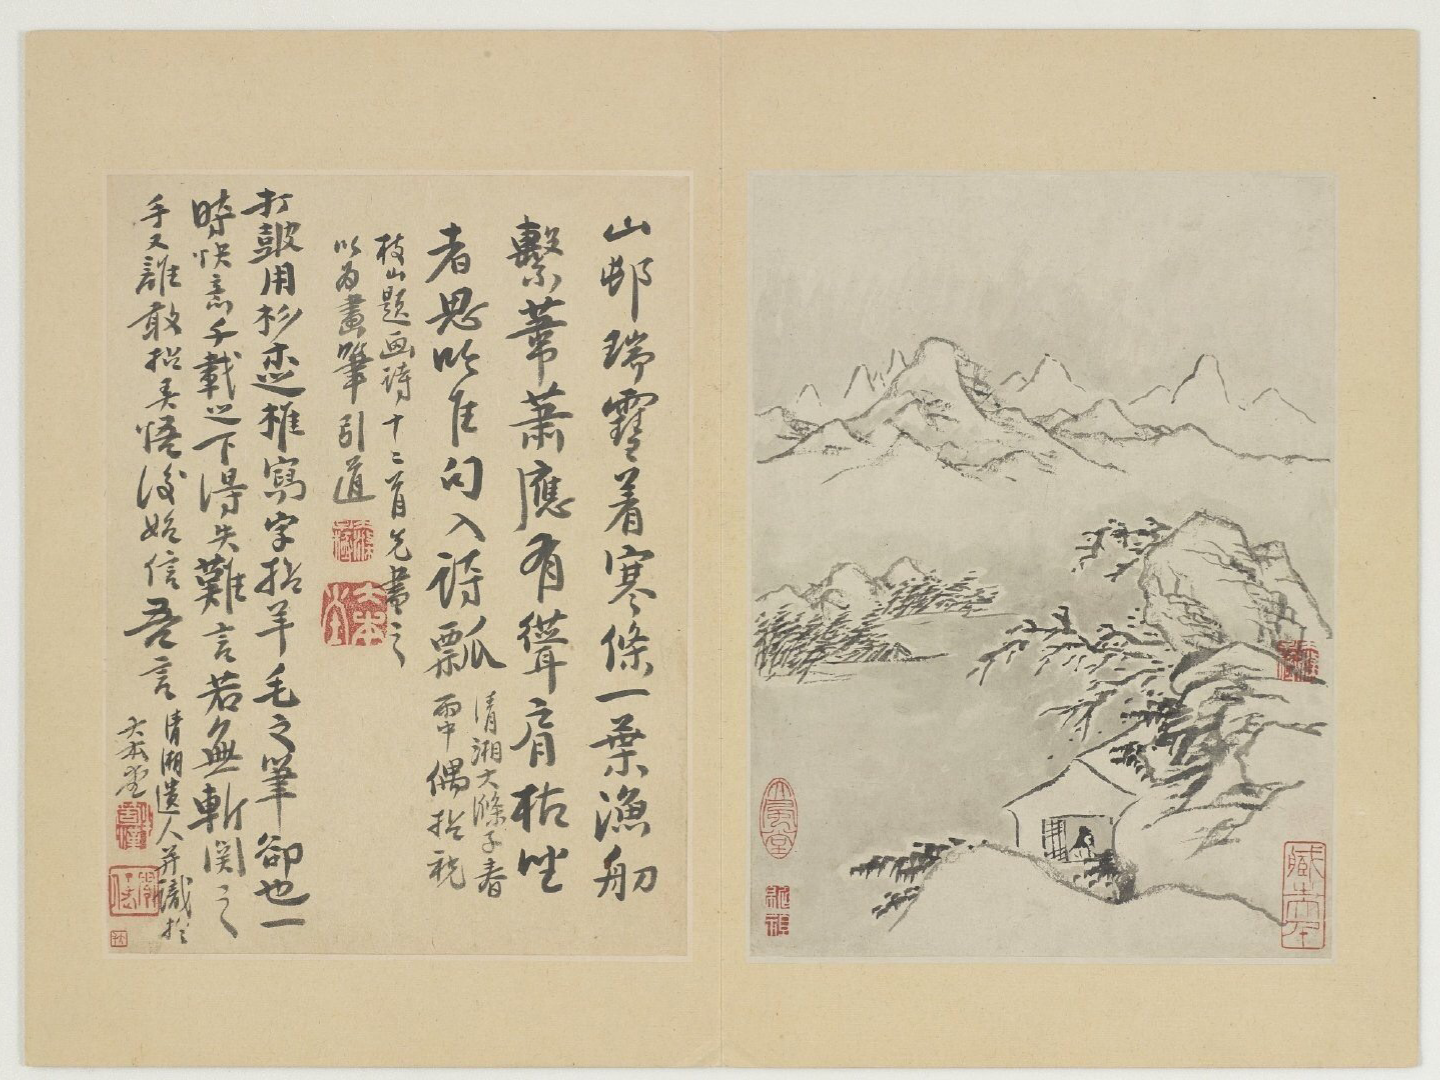 山邨瑞霙着寒條一葉漁舠
繫葦蕭應有聳肩枯坐
者思吟隹句入詩瓢
清湘大滌子春
雨中偶拈禿
枝山題画詩十二首先書之
以為畫筆引道
打皷用杉 椎寫字拈羊毛之筆卻也一
時快意千載之下得失難言若無斬関之
手又誰敢拈弄悟後始信吾言
清湘遺人并識於
大本堂